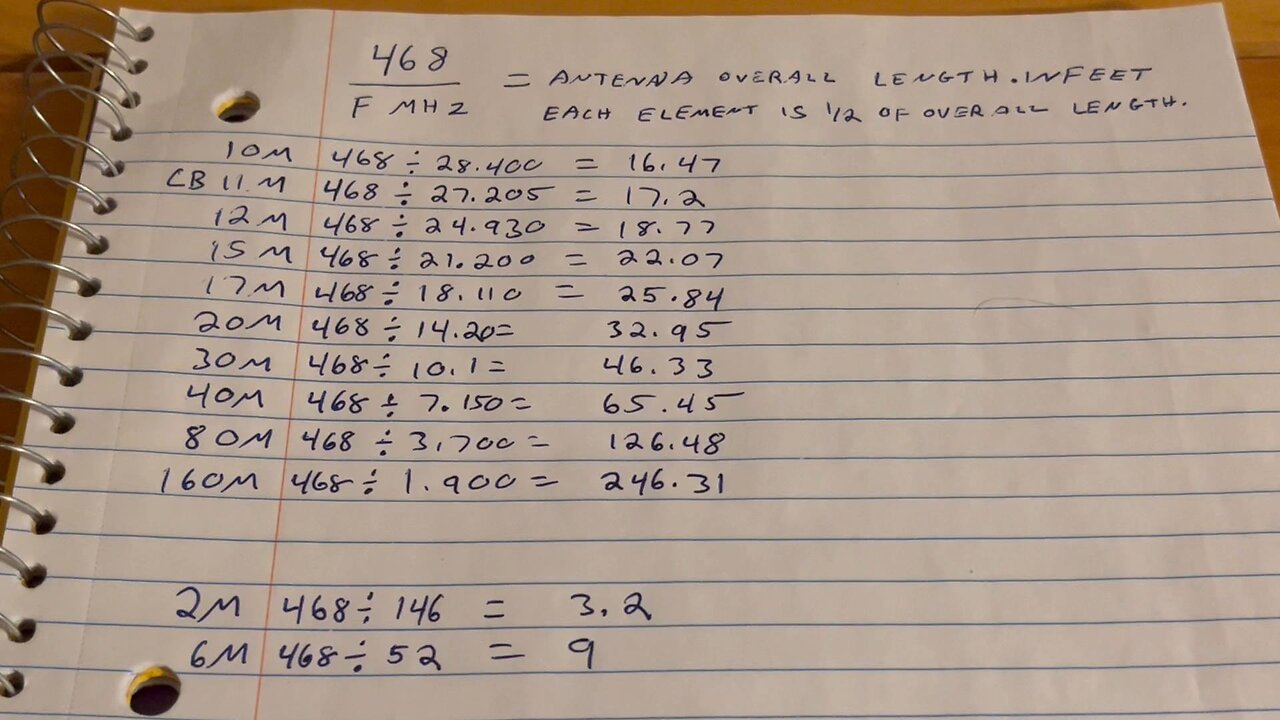 468
F MHZ
= ANTENNA OVERALL LENGTH. IN FEET
EACH ELEMENT IS 1/2 OF OVERALL LENGTH.
10M 468 ÷ 28.400 = 16.47
CB 11M 468 ÷ 27.205 = 17.2
12M 468 ÷ 24.930 = 18.77
15M 468 ÷ 21.200 = 22.07
17M 468 ÷ 18.110 = 25.84
20M 468 ÷ 14.20= 32.95
30M 468 ÷ 10.1 = 46.33
40M 468 ÷ 7.150 = 65.45
80M 468 ÷ 3.700 = 126.48
160M 468 ÷ 1.900 = 246.31
2M 468 ÷ 146 = 3.2
6M 468 ÷ 52 = 9